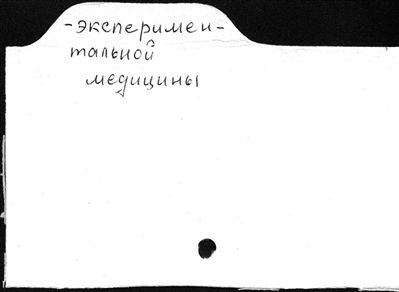 -эксперимен-
тальной
медицины